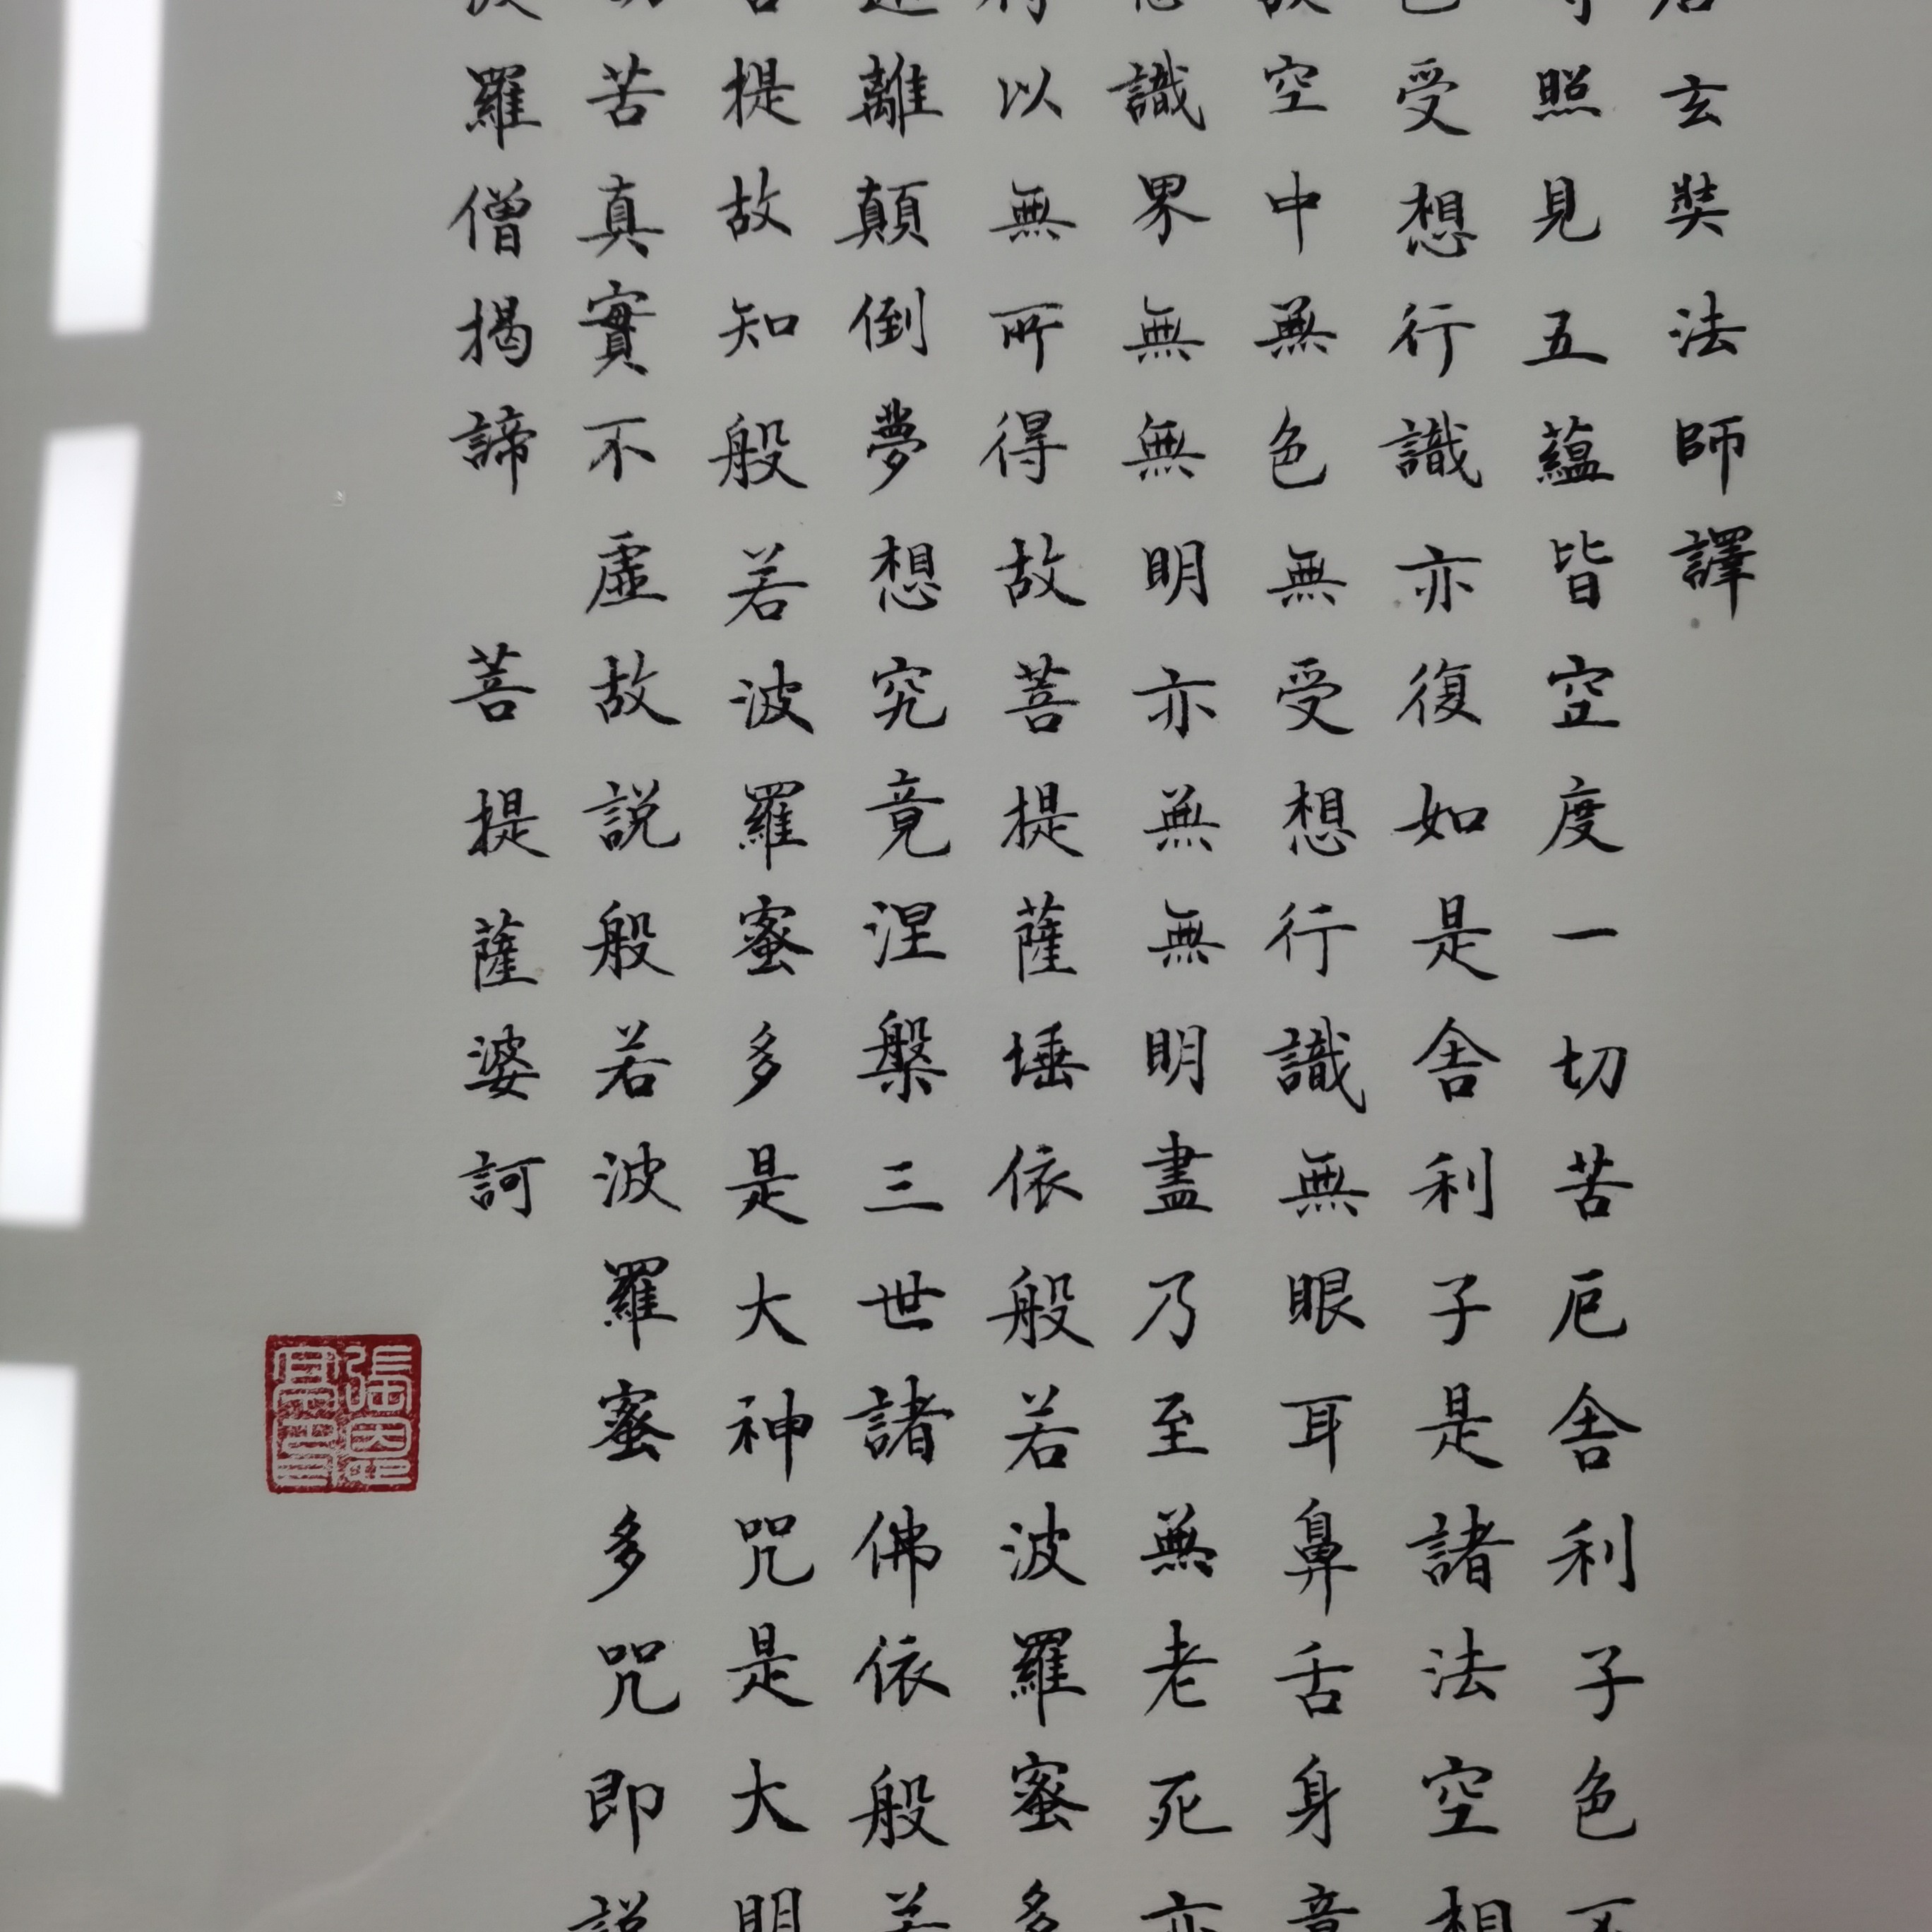 玄奘法師譯
照見五蘊皆空度一切苦厄舍利子色
受想行識亦復如是舍利子是諸法空相
空中無色無受想行識無眼耳鼻舌身意
識界無無明亦無無明盡乃至無老死亦
以無所得故菩提薩埵依般若波羅蜜多
離顛倒夢想究竟涅槃三世諸佛依般若
提故知般若波羅蜜多是大神咒是大明
苦真實不虛故說般若波羅蜜多咒即說
羅僧揭諦 菩提薩婆訶